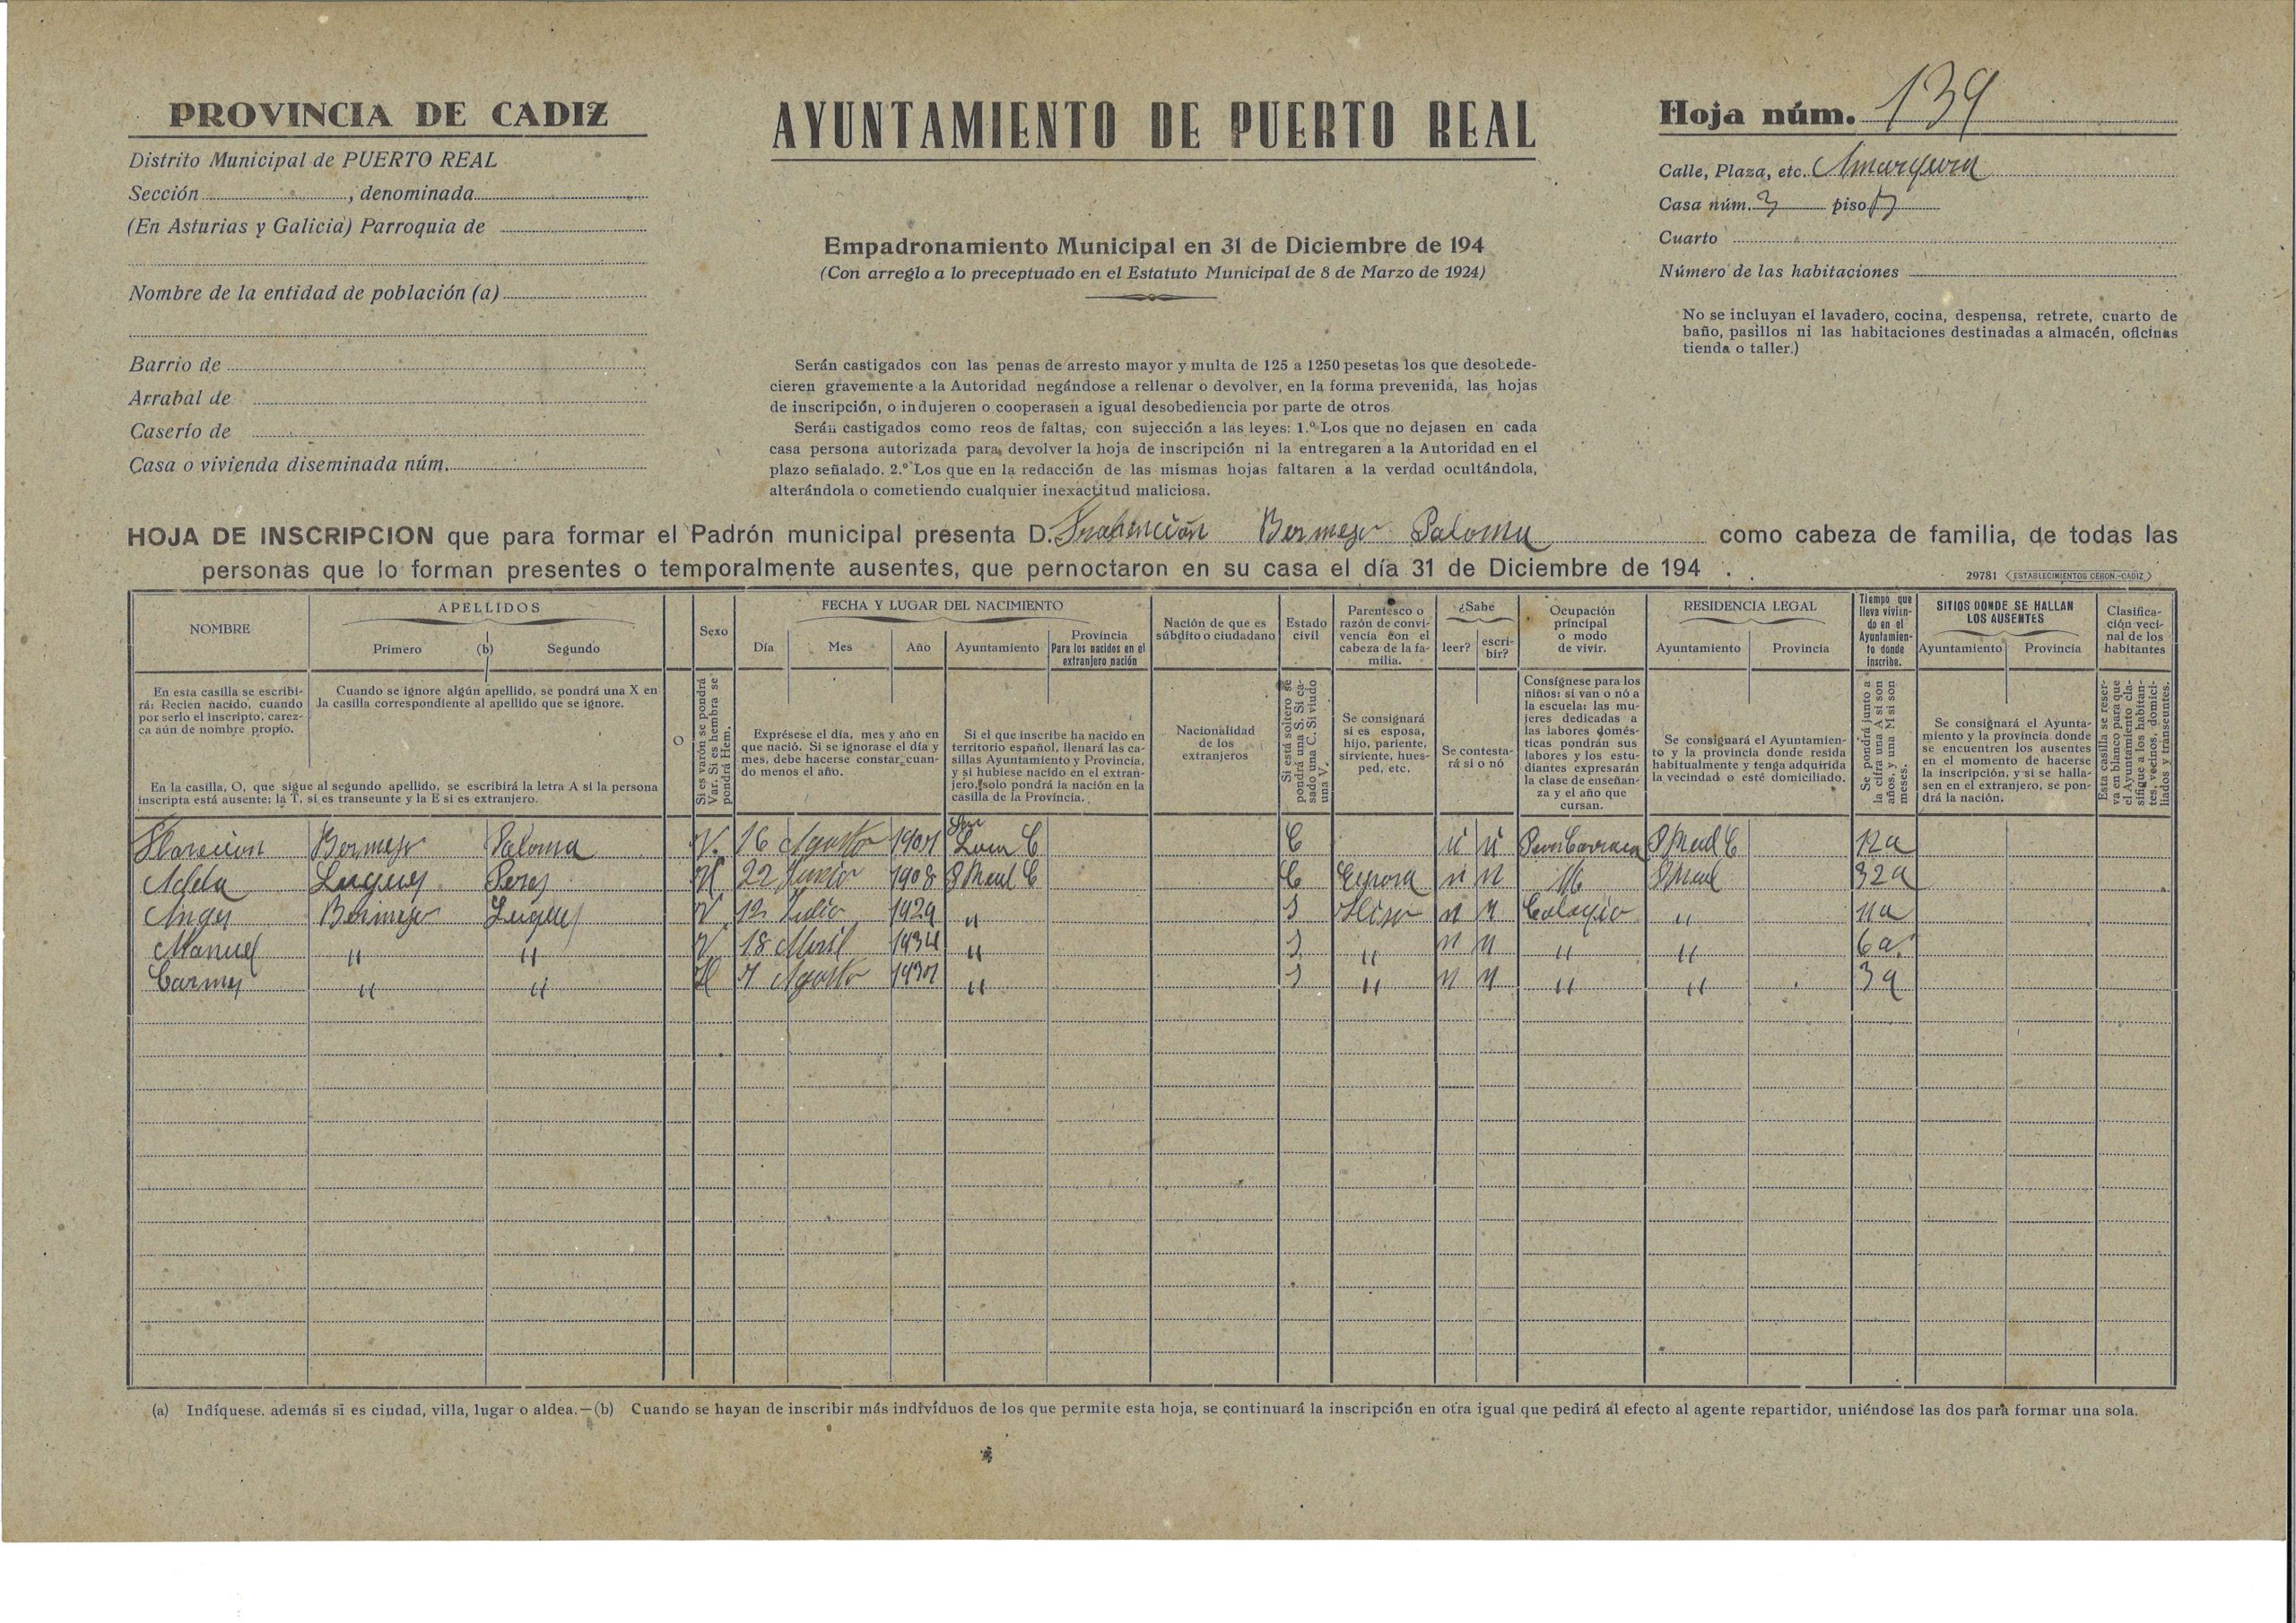 PROVINCIA DE CADIZ
Distrito Municipal de PUERTO REAL
Sección , denominada
(En Asturias y Galicia) Parroquia de
Nombre de la entidad de población (a)
Barrio de
Arrabal de
Caserío de
Casa o vivienda diseminada núm.
AYUNTAMIENTO DE PUERTO REAL
Empadronamiento Municipal en 31 de Diciembre de 194
(Con arreglo a lo preceptuado en el Estatuto Municipal de 8 de Marzo de 1924)
Serán castigados con las penas de arresto mayor y multa de 125 a 1250 pesetas los que desobede-
cieren gravemente a la Autoridad negándose a rellenar o devolver, en la forma prevenida, las hojas
de inscripción, o indujeren o cooperasen a igual desobediencia por parte de otros
Serán castigados como reos de faltas, con sujección a las leyes: 1.º Los que no dejasen en cada
casa persona autorizada para devolver la hoja de inscripción ni la entregaren a la Autoridad en el
plazo señalado. 2.º Los que en la redacción de las mismas hojas faltaren a la verdad ocultándola,
alterándola o cometiendo cualquier inexactitud maliciosa.
Hoja núm. 139
Calle, Plaza, etc. Amargura
Casa núm. 3 piso
Cuarto
Número de las habitaciones
No se incluyan el lavadero, cocina, despensa, retrete, cuarto de
baño, pasillos ni las habitaciones destinadas a almacén, oficinas
tienda o taller.)
HOJA DE INSCRIPCION que para formar el Padrón municipal presenta D. Bermejo Paloma como cabeza de familia, de todas las
personas que lo forman presentes o temporalmente ausentes, que pernoctaron en su casa el día 31 de Diciembre de 194 .
29781 (ESTABLECIMIENTOS CERON.-CADIZ)
NOMBRE
APELLIDOS
Primero (b) Segundo
O
Sexo
FECHA Y LUGAR DEL NACIMIENTO
Día Mes Año Ayuntamiento
Provincia
Para los nacidos en el
extranjero nación
Nación de que es
súbdito o ciudadano
Estado
civil
Parentesco o
razón de convi-
vencia con el
cabeza de la fa-
milia.
¿Sabe
leer? escri-
bir?
Ocupación
principal
o modo
de vivir.
RESIDENCIA LEGAL
Ayuntamiento Provincia
Tiempo que
lleva vivien-
do en el
Ayuntamien-
to donde
inscribe.
SITIOS DONDE SE HALLAN
LOS AUSENTES
Ayuntamiento Provincia
Clasifica-
ción veci-
nal de los
habitantes
En esta casilla se escribi-
rá: Recien nacido, cuando
por serlo el inscripto, carez-
ca aún de nombre propio.
Cuando se ignore algún apellido, se pondrá una X en
la casilla correspondiente al apellido que se ignore.
En la casilla, O, que sigue al segundo apellido, se escribirá la letra A si la persona
inscripta está ausente; la T, si es transeunte y la E si es extranjero.
Si es varón se pondrá
Var. Si es hembra se
pondrá Hem.
Exprésese el día, mes y año en
que nació. Si se ignorase el día y
mes, debe hacerse constar cuan-
do menos el año.
Si el que inscribe ha nacido en
territorio español, llenará las ca-
sillas Ayuntamiento y Provincia,
y si hubiese nacido en el extran-
jero, solo pondrá la nación en la
casilla de la Provincia.
Nacionalidad
de los
extranjeros
Si está soltero se
pondrá una S. Si ca-
sado una C. Si viudo
una V.
Se consignará
si es esposa,
hijo, pariente,
sirviente, hues-
ped, etc.
Se contesta-
rá si o nó
Consígnese para los
niños: si van o nó a
la escuela: las mu-
jeres dedicadas a
las labores domés-
ticas pondrán sus
labores y los estu-
diantes expresarán
la clase de enseñan-
za y el año que
cursan.
Se consignará el Ayuntamien-
to y la provincia donde resida
habitualmente y tenga adquirida
la vecindad o esté domiciliado.
Se pondrá junto a
la cifra una A si son
años, y una M si son
meses.
Se consignará el Ayunta-
miento y la provincia donde
se encuentren los ausentes
en el momento de hacerse
la inscripción, y si se halla-
sen en el extranjero, se pon-
drá la nación.
Esta casilla se reser-
va en blanco para que
el Ayuntamiento cla-
sifique a los habitan-
tes, vecinos, domici-
liados y transeuntes.
Bermejo Paloma V. 16 Agosto C 12a
Adela Luques Perez H 22 Junio 1908 P Real C C Esposa P Real 32a
Angel Bermejo Luques V 12 Julio 1929 " S Hijo Colegio " 11a
Manuel " " V 18 Abril 1934 " S " " " 6a
Carmen " " H 7 Agosto " S " " " 3a
(a) Indíquese. además si es ciudad, villa, lugar o aldea.—(b) Cuando se hayan de inscribir más indivíduos de los que permite esta hoja, se continuará la inscripción en otra igual que pedirá al efecto al agente repartidor, uniéndose las dos para formar una sola.